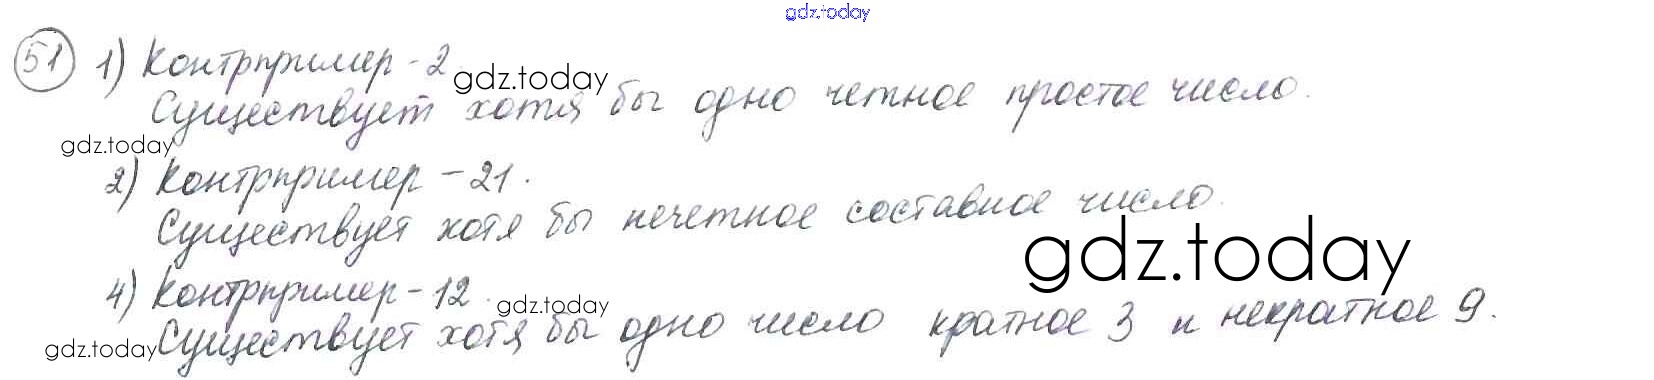 gdz.today
51 1) Контрпример - 2.
gdz.today
Существует хотя бы одно четное простое число.
gdz.today
2) Контрпример - 21.
Существует хотя бы нечетное составное число.
gdz.today
4) Контрпример - 12.
gdz.today
Существует хотя бы одно число кратное 3 и некратное 9.
gdz.today